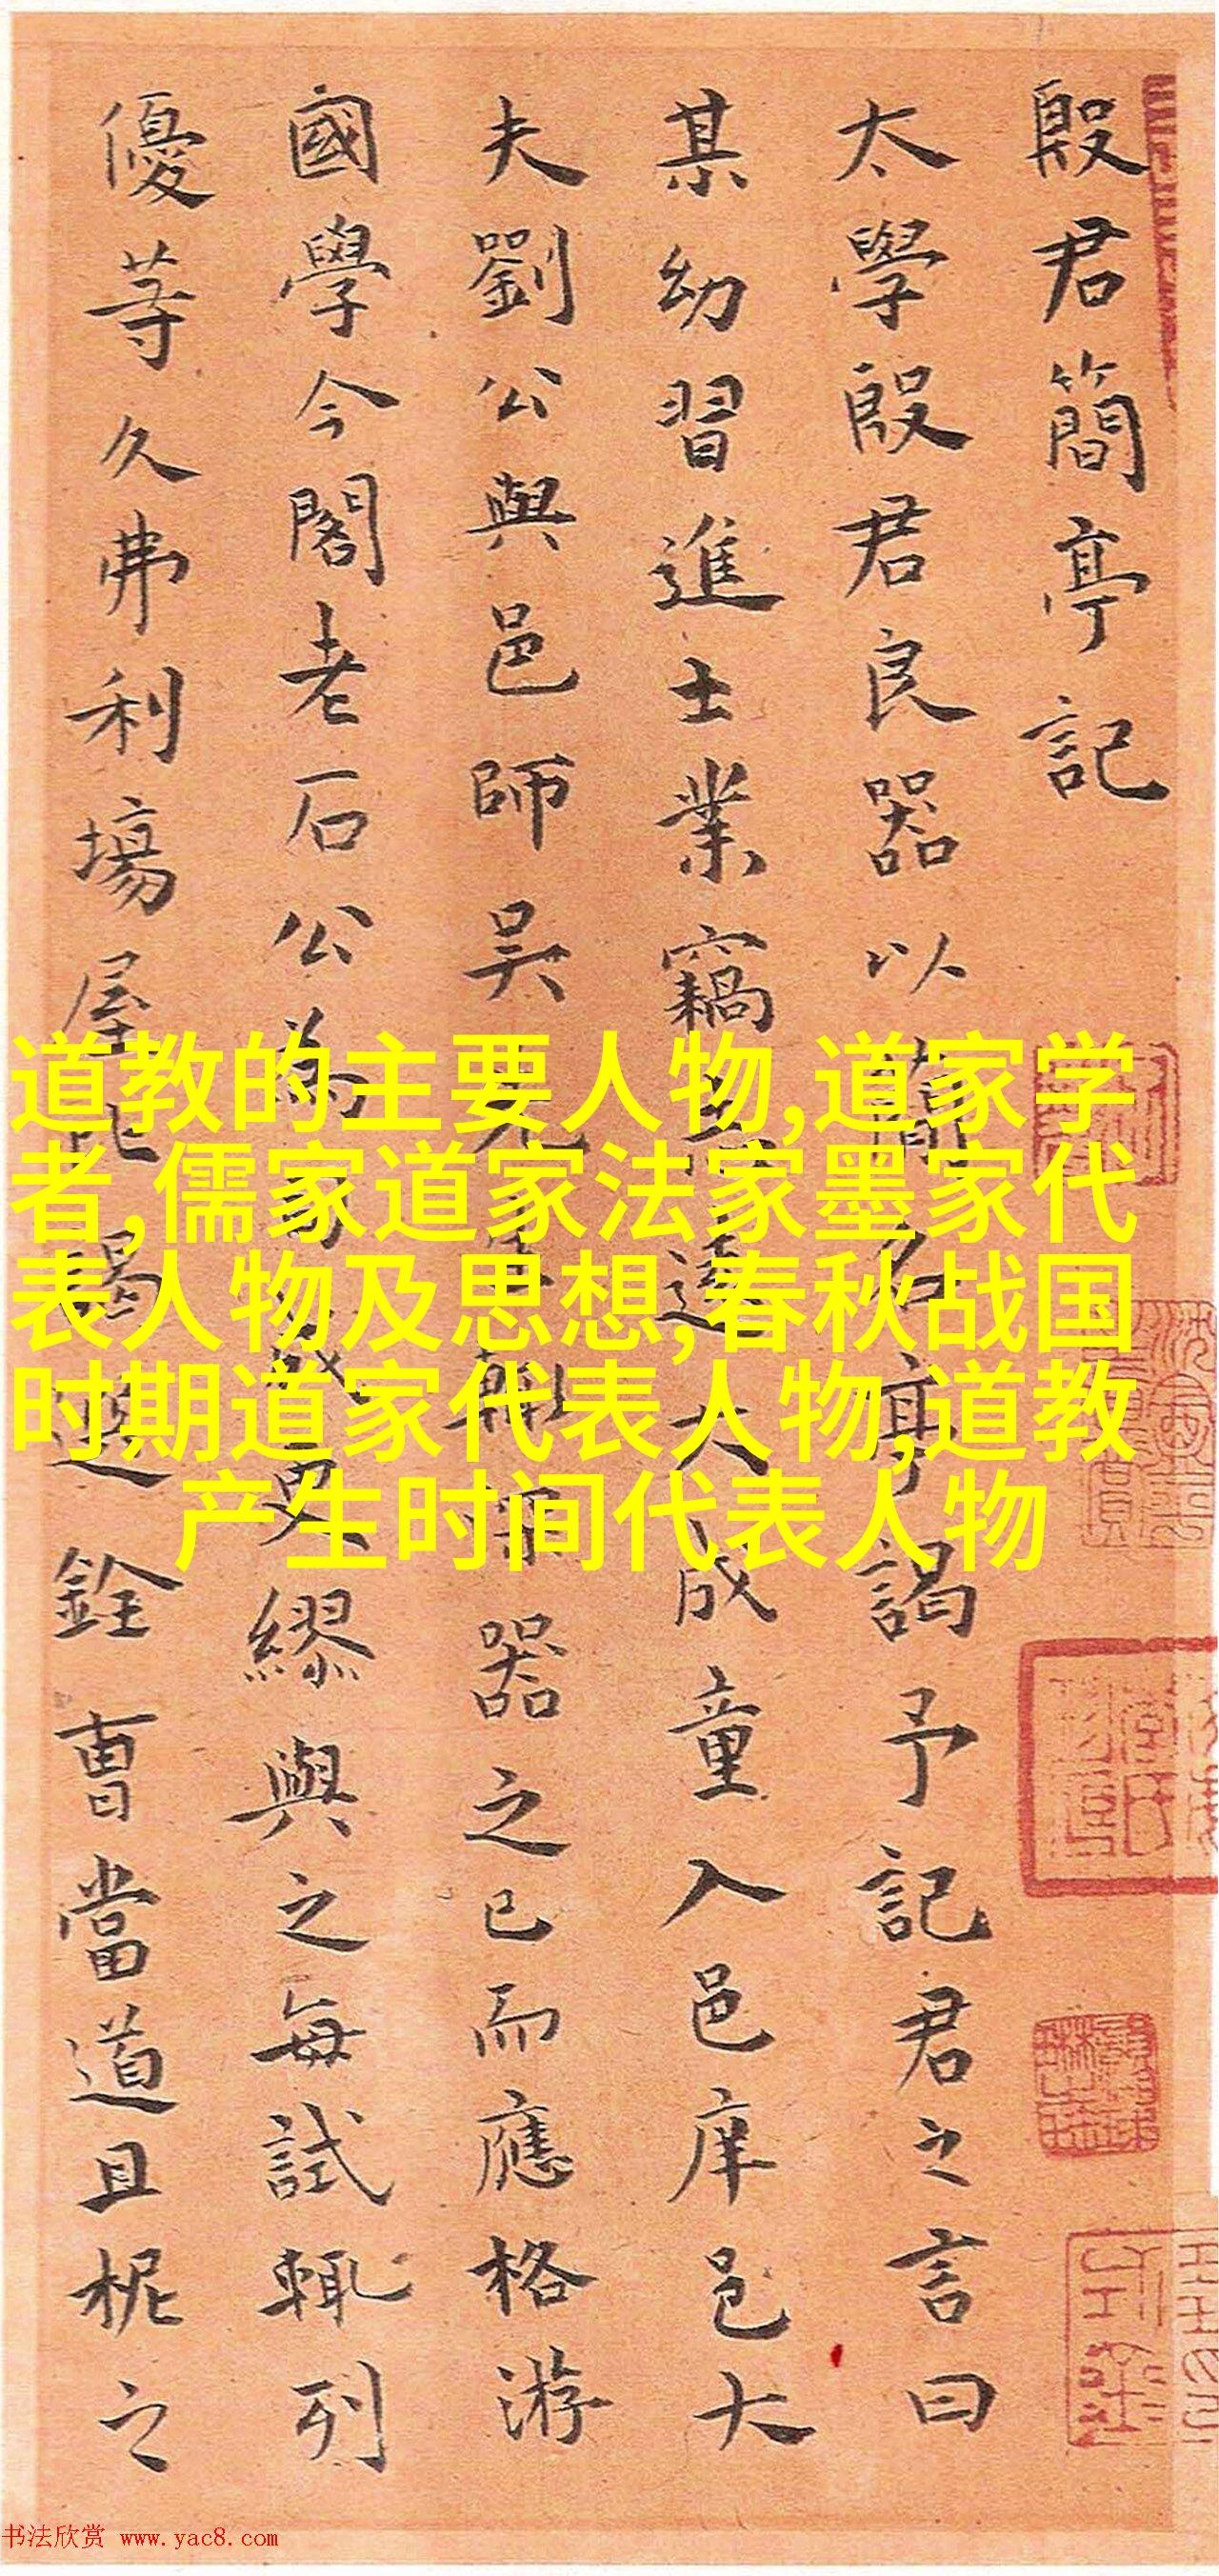 殷君簡亭記
太學殷君良器以簡名亭謁予記君之言曰
某幼習進士業竊達大成童入邑庠邑大
夫劉公與邑師吳先器之已而應格游
國學今閣老石公為更繆與之每試輒列
優等久弗利場屋比謁選銓曹當道且柅之
道教的主要人物,道家学
者,儒家道家法家墨家代
表人物及思想,春秋战国
时期道家代表人物,道教
产生时间代表人物
书法欣赏 www.yac8.com